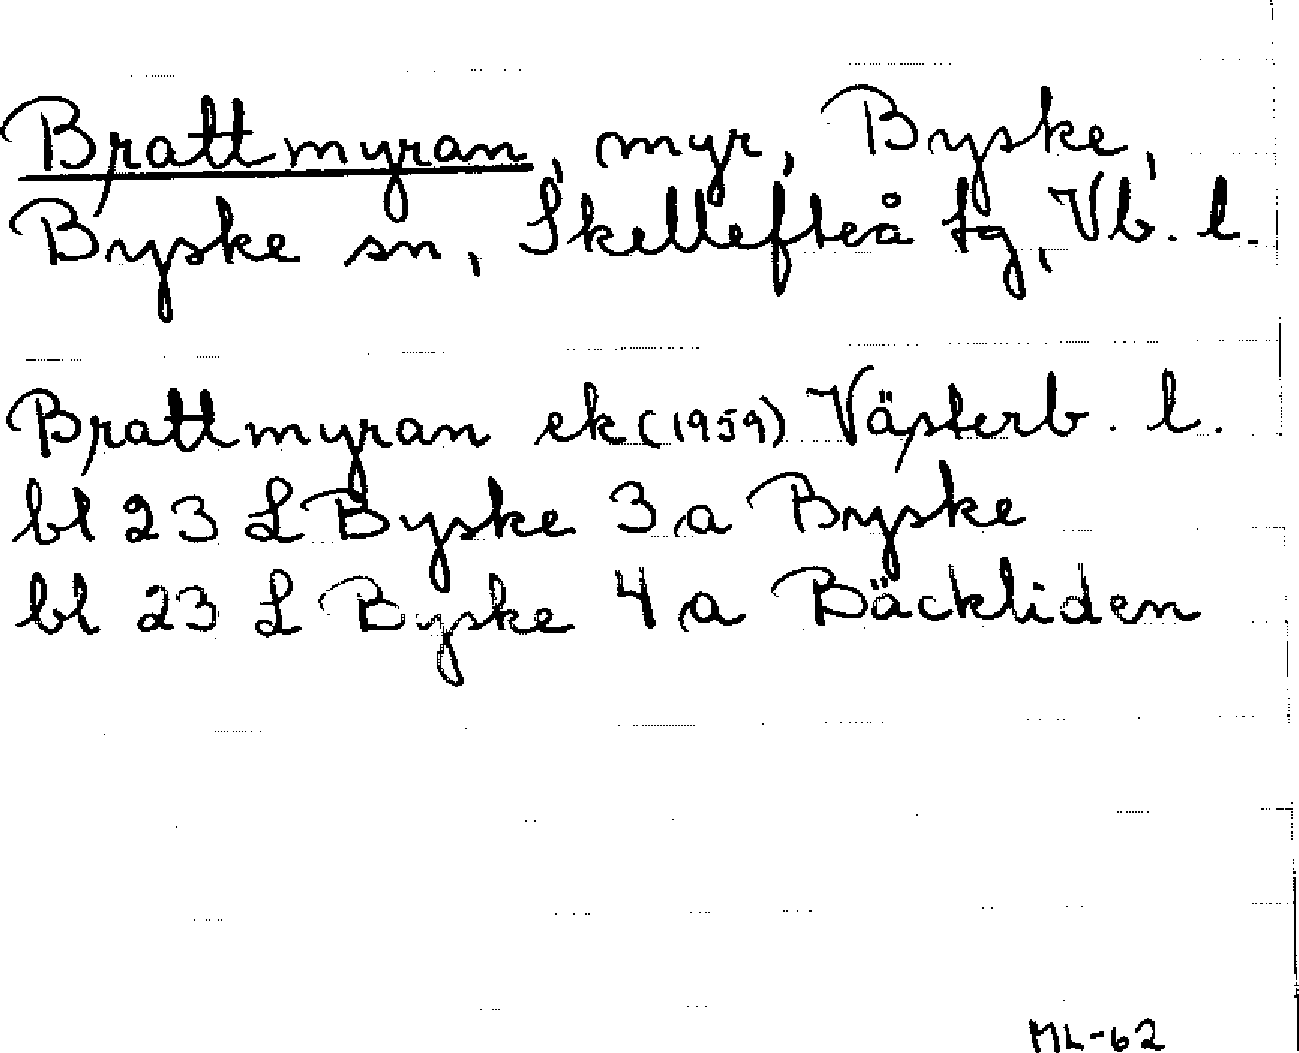 Brattmyran, myr, Byske,
Byske sn, Skellefteå tg, Vb. l.
Brattmyran ek (1959) Västerb. l.
bl 23 L Byske 3 a Byske
bl 23 L Byske 4 a Bäckliden
ML-62